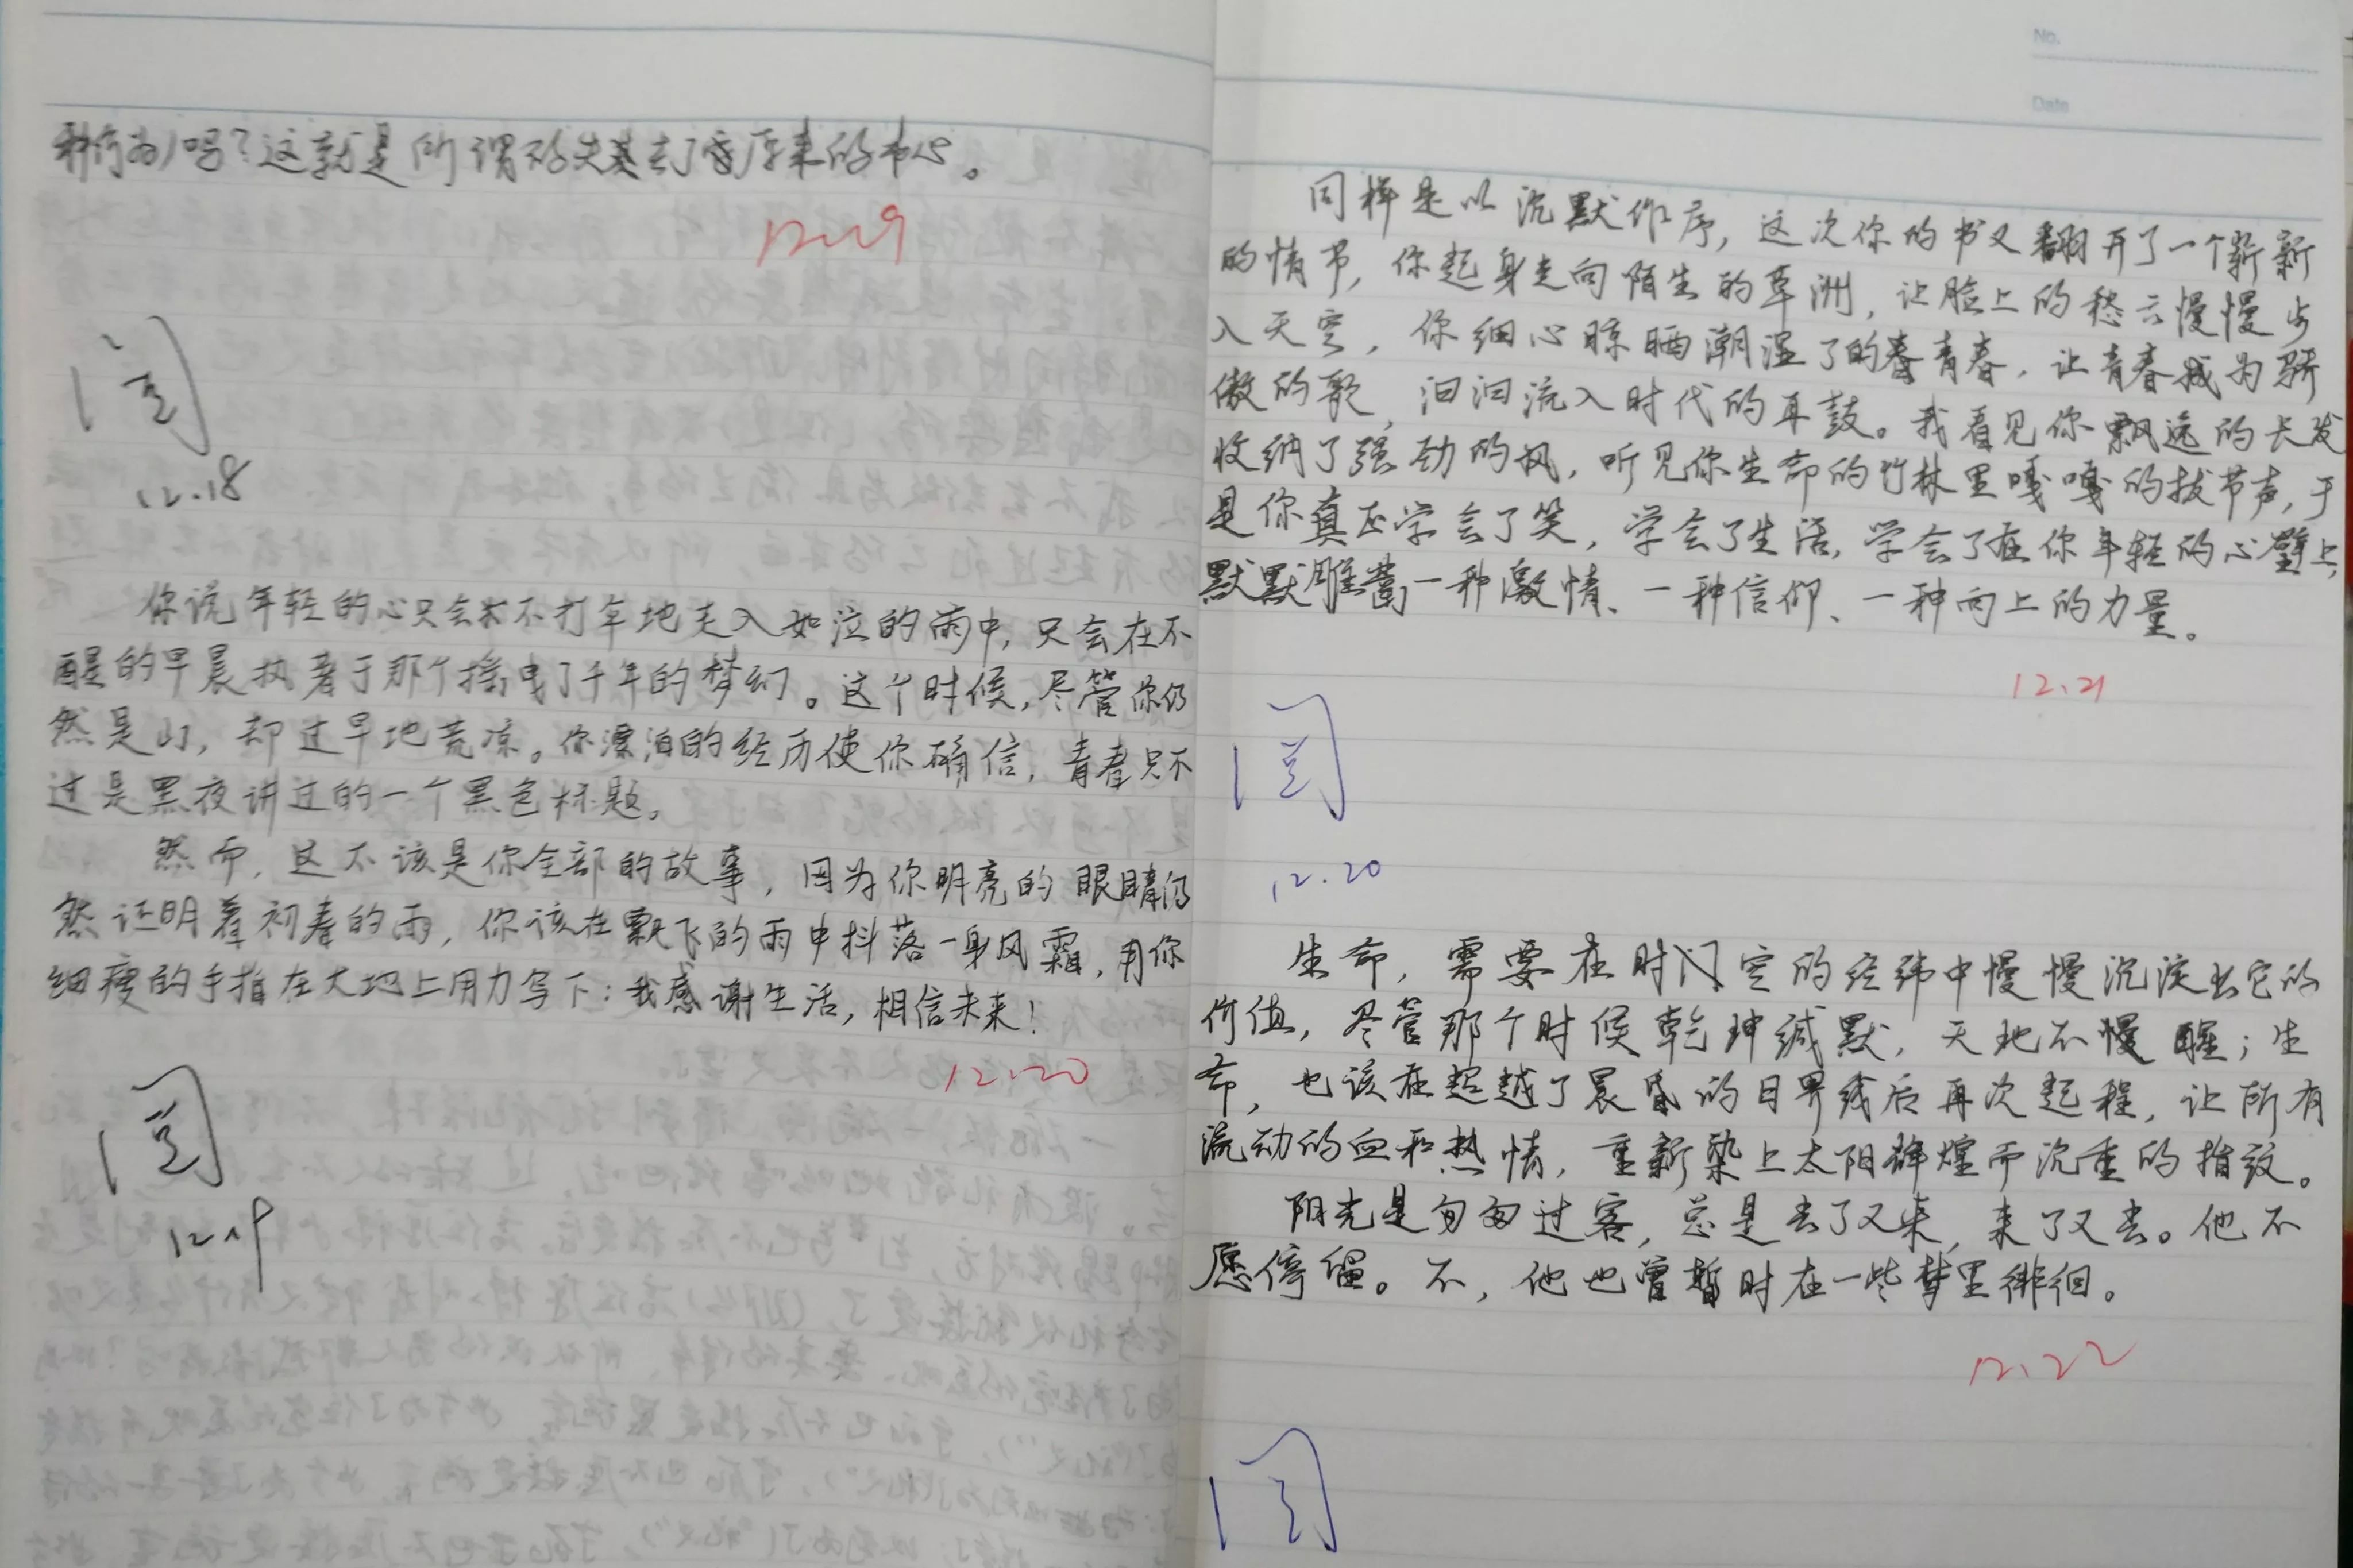 种行为)吗?这就是所谓的失去了原来的本心。
12.19
阅
12.18
你说年轻的心只会不打伞地走入如泣的雨中,只会在不
醒的早晨执著于那个摇曳了千年的梦幻。这个时候,尽管你仍
然是山,却过早地荒凉。你漂泊的经历使你确信,青春只不
过是黑夜讲过的一个黑色标题。
然而,这不该是你全部的故事,因为你明亮的眼睛仍
然证明着初春的雨,你该在飘飞的雨中抖落一身风霜,用你
细瘦的手指在大地上用力写下:我感谢生活,相信未来!
12.20
阅
12.19
No.
Date
同样是以沉默作序,这次你的书又翻开了一个崭新
的情节,你起身走向陌生的草洲,让脸上的愁云慢慢步
入天空,你细心晾晒潮湿了的青春,让青春成为骄
傲的歌,汩汩流入时代的耳鼓。我看见你飘逸的长发
收纳了强劲的风,听见你生命的竹林里嘎嘎的拔节声,于
是你真正学会了笑,学会了生活,学会了在你年轻的心壁上,
默默雕凿一种激情、一种信仰、一种向上的力量。
12.21
阅
12.20
生命,需要在时空的经纬中慢慢沉淀出它的
价值,尽管那个时候乾坤缄默,天地不醒;生
命,也该在超越了晨昏的日界线后再次起程,让所有
流动的血和热情,重新染上太阳辉煌而沉重的指纹。
阳光是匆匆过客,总是去了又来,来了又去。他不
愿停留。不,他也曾暂时在一些梦里徘徊。
12.22
阅